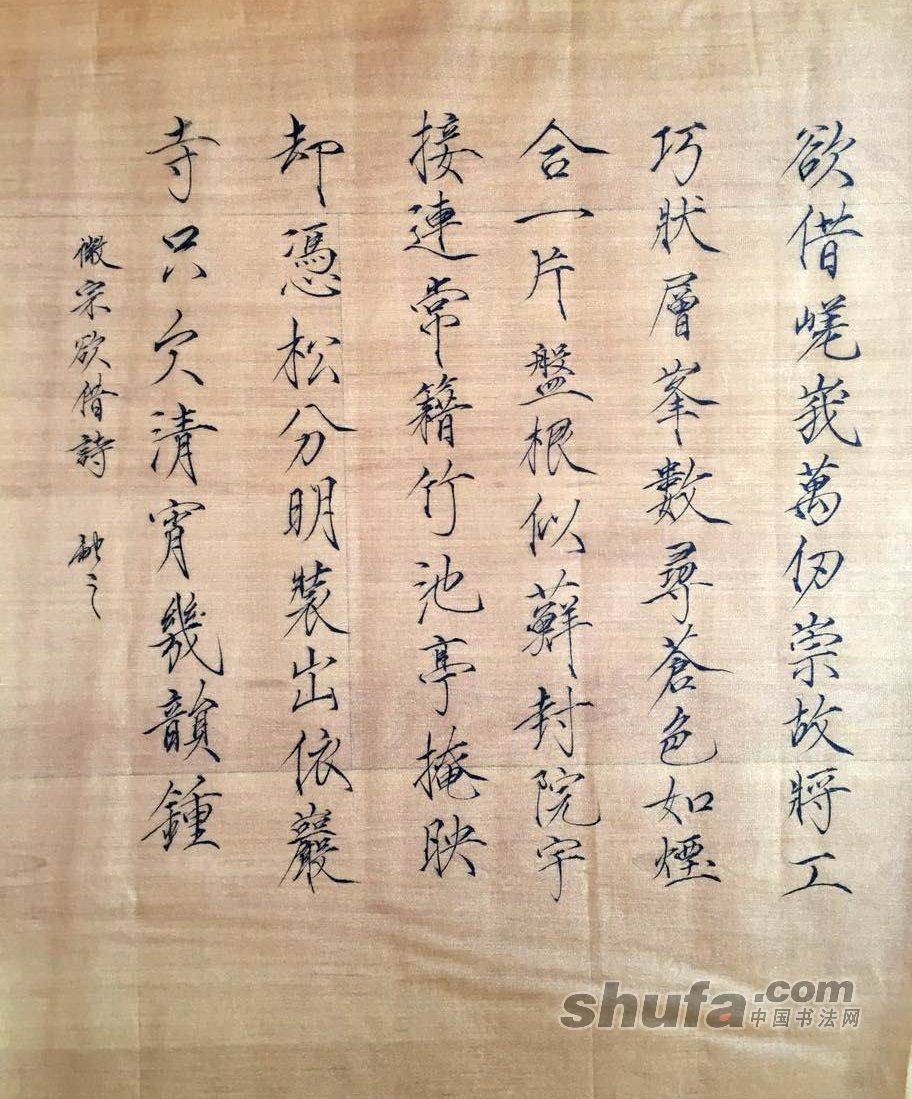 欲借嵯峩萬仞崇故將工
巧狀層峯數尋蒼色如煙
合一片盤根似蘚封院宇
接連常籍竹池亭掩映
却憑松分明裝出依巖
寺只欠清宵幾韻鍾
徽宗欲借詩
shufa.com
中国书法网